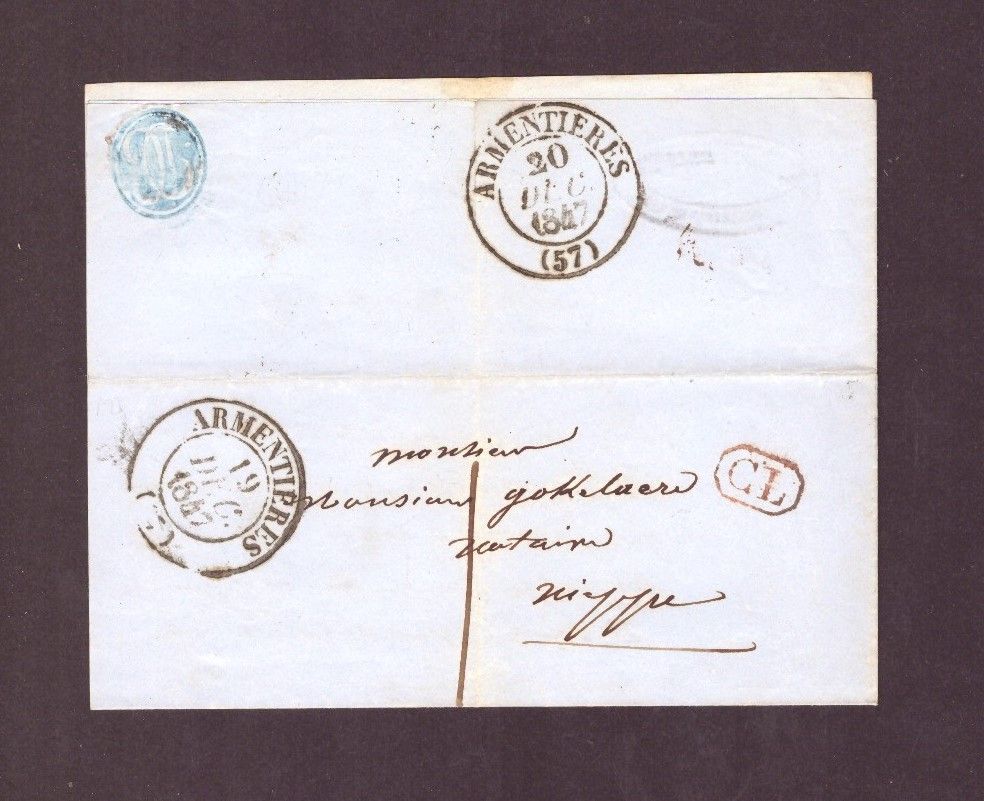 ARMENTIERES
20
DEC.
1847
(57)
ARMENTIERES
19
DEC.
1847
monsieur
Monsieur gokelaere
notaire
nieppe
CL
1